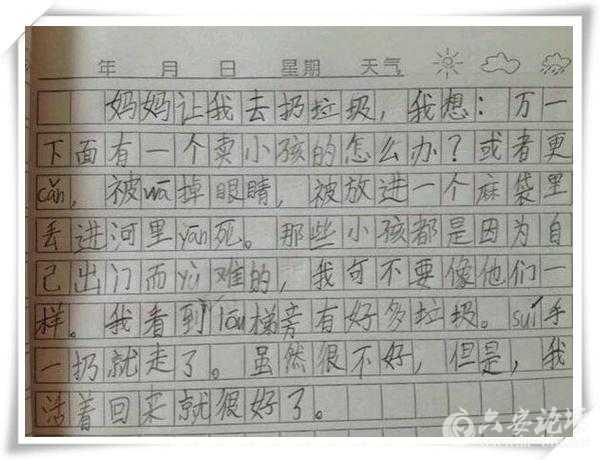 年 月 日 星期 天气
妈妈让我去扔垃圾，我想：万一
下面有一个卖小孩的怎么办？或者更
cǎn，被wā掉眼睛，被放进一个麻袋里
丢进河里yān死。那些小孩都是因为自
己出门而yù难的，我可不要像他们一
样。我看到lóu梯旁有好多垃圾。suí手
一扔就走了。虽然很不好，但是，我
活着回来就很好了。
六安论坛